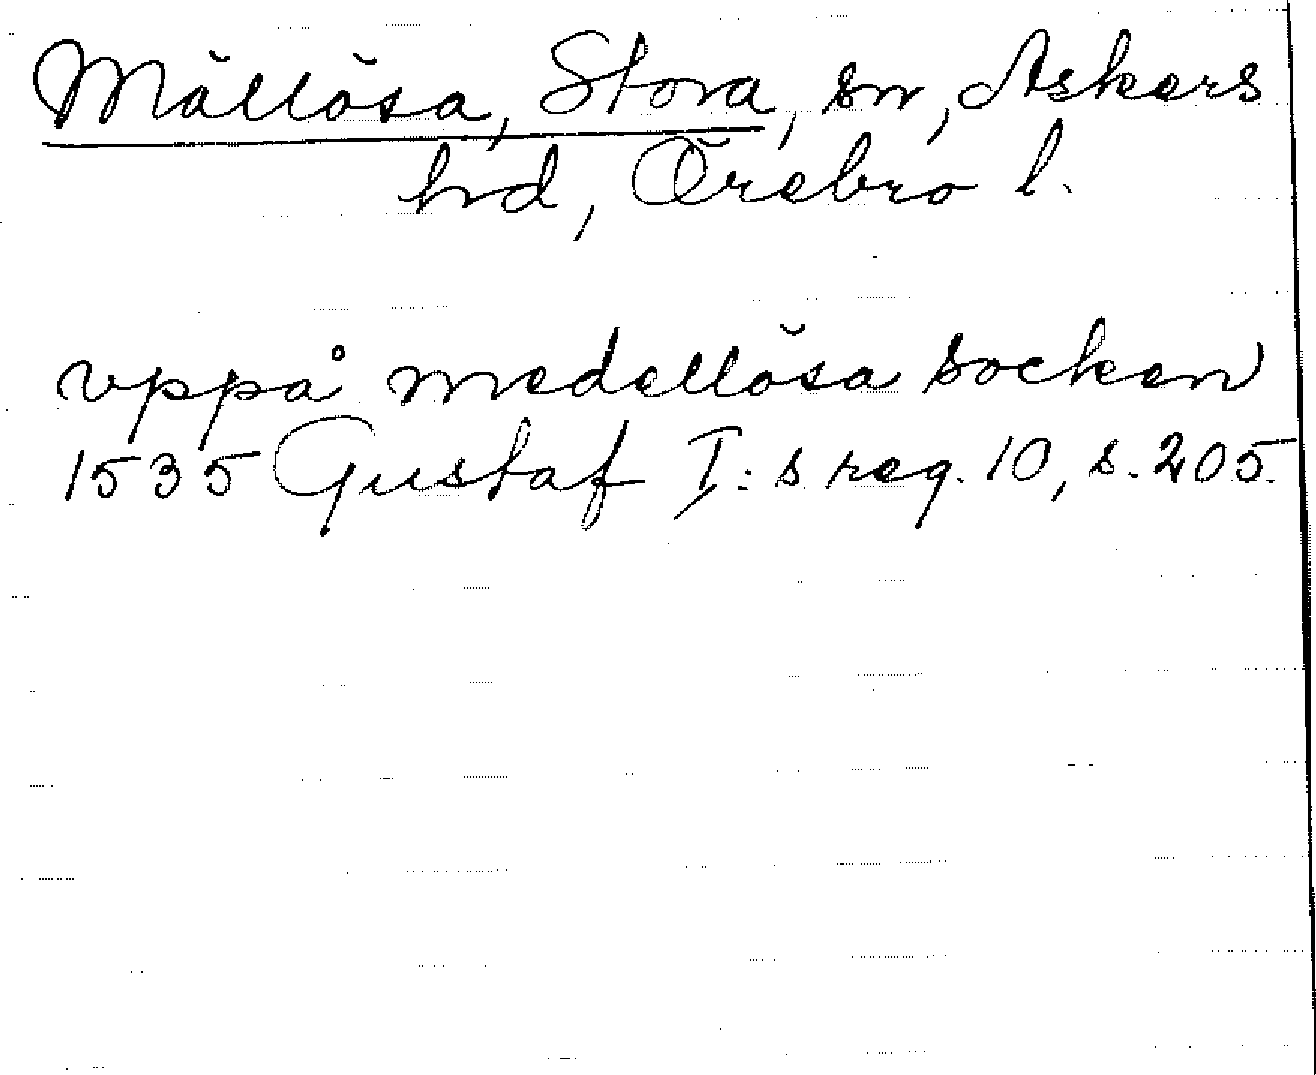 Mällösa, Stora, sn, Askers
hd, Örebro l.
vppå medellösa socken
1535 Gustaf I:s reg. 10, s. 205.